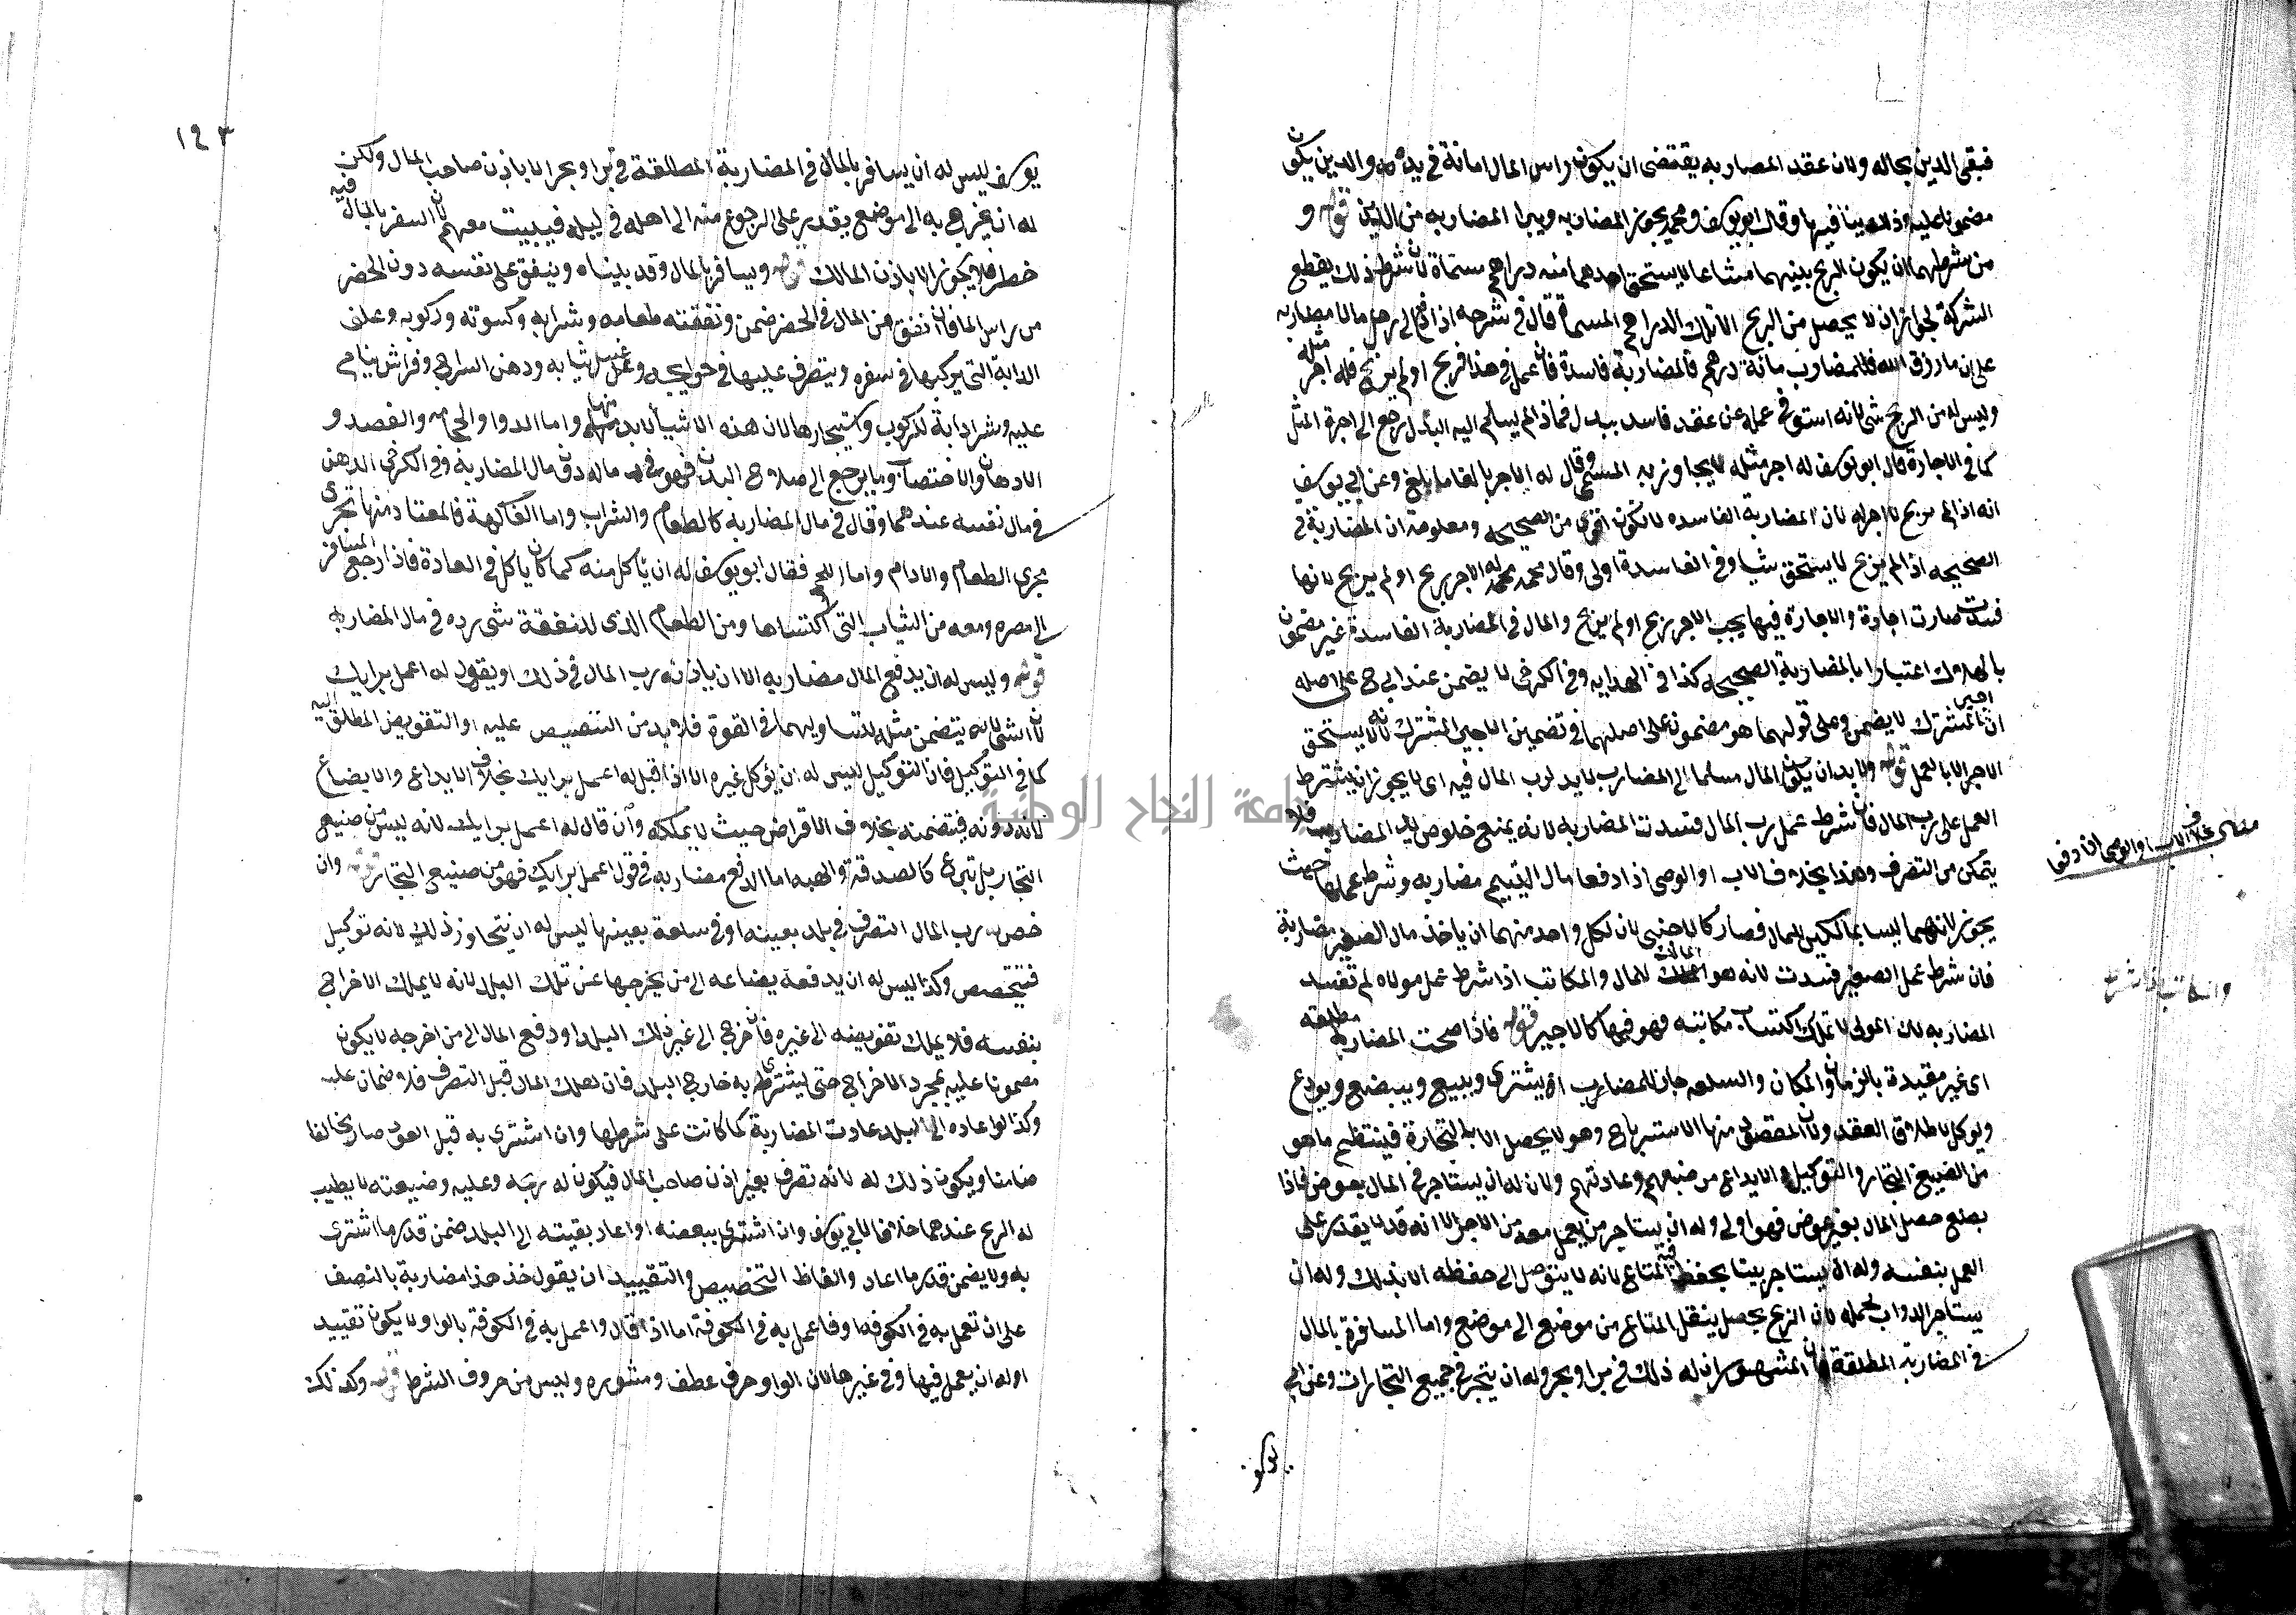 فبقى الدين بحاله ولان عقد المضاربه يقتضى ان يكون راس المال امانة في يده والدين يكون
مضمونا عليه وذلك ينافيها وقال ابو يوسف ومحمد يجوز المضاربه ويبرا المضارب من الدين قوله و
من شرطهما ان يكون الربح بينهما مشاعا لا يستحق احدهما منه دراهم مسماة لان شرط ذلك يقطع
الشركة لجواز ان لا يحصل من الربح الا تلك الدراهم المسماة قال في شرحه اذا دفع الى رجل مالا مضاربه
على ان ما رزق الله فللمضارب مائة درهم فالمضاربة فاسدة فان عمل في هذا فربح او لم يربح فله اجر مثله
وليس له من الربح شي لانه استوفى عمله عن عقد فاسد ببدل فاذا لم يسلم اليه البدل رجع الى اجرة المثل
كما في الاجارة قال ابو يوسف له اجر مثله لا يجاوز به المسمى وقال له الاجر بالغا ما بلغ وعن ابي يوسف
انه اذا لم يربح لا اجر له لان المضاربة الفاسده لا تكون اقوى من الصحيحه ومعلوم ان المضاربة في
الصحيحه اذا لم يربح لا يستحق شيا وفي الفاسدة اولى وقال محمد له الاجر ربح او لم يربح لانها
فسدت صارت اجارة والاجارة فيها يجب الاجر ربح او لم يربح والمال في المضاربة الفاسدة غير مضمون
بالهلاك اعتبارا بالمضاربة الصحيحه كذا في الهدايه وفي الكرخي لا يضمن عند ابي ح على اصله
ان اجير المشترك لا يضمن وعلى قولهما هو مضمون على اصلهما في تضمين الاجير المشترك لانه لا يستحق
الاجر الا بالعمل قوله ولا بد ان يكون المال مسلما الى المضارب لا يد لرب المال فيه اى لا يجوز ان يشترط
العمل على رب المال فان شرط عمل رب المال فسدت المضاربه لانه يمنع خلوص يد المضارب فلا
يتمكن من التصرف وهذا بخلاف الاب او الوصى اذا دفعا مال اليتيم مضاربه وشرط عملهما حيث
يجوز لانهما ليسا بمالكين للمال فصار كالاجنبي لان لكل واحد منهما ان ياخذ مال الصغير مضاربة
فان شرط عمل الصغير فسدت لانه هو المالك للمال والمكاتب اذا شرط عمل مولاه لم تفسد
المضاربه لان المولى لا يملك اكتساب مكاتبه فهو فيها كالاجير قوله فاذا صحت المضاربة مطلقه
اى غير مقيدة بالزمان والمكان والسلعه جاز للمضارب ان يشترى ويبيع ويبضع ويودع
ويوكل لاطلاق العقد ولان المقصود منها الاسترباح وهو لا يحصل الا بالتجارة فينتظم ما هو
من الصنيع التجار والتوكيل والايداع من صنيعهم وعادتهم ولان له ان يستاجر في المال بعوض فاذا
بضع حصل المال بغير عوض فهو اولى وله ان يستاجر من يعمل معه من الاجر الا انه قد لا يقدر على
العمل بنفسه وله ان يستاجر بيتا يحفظ فيه المتاع لانه لا يتوصل الى حفظه الا بذلك وله ان
يستاجر الدواب لحمله لان الربح يحصل بنقل المتاع من موضع الى موضع واما المسافرة بالمال
في المضاربة المطلقة فان المشهور ان له ذلك في بر او بحر وله ان يتجر في جميع التجارات وعن ابي
يوسف
بخلاف الاب او الوصى اذا دفعا
والمكاتب اذا شرط
١٤٣
يوسف ليس له ان يسافر بالمال في المضاربة المطلقة في برا وبحر الا باذن صاحب المال ولكن
له ان يخرج به الى موضع يقدر على الرجوع منه الى اهله في ليله فيبيت معهم لان السفر بالمال فيه
خطر فلا يجوز الا باذن المالك قوله ويسافر بالمال وقد بيناه وينفق على نفسه دون الحضر
من راس المال فان انفق من المال في الحضر ضمن ونفقته طعامه وشرابه وكسوته وركوبه وعلف
الدابة التي يركبها في سفره ويتصرف عليها في حوايجه وغسل ثيابه ودهن السراج وفراش ينام
عليه وشرا دابة للركوب واستيجارها لان هذه الاشيا لا بد منها واما الدوا والحجامه والفصد و
الادهان والاختضاب وما يرجع الى صلاح البدن فهو في ماله دون مال المضاربة وفي الكرخى الدهن
في مال نفسه عندهما وقال في مال المضاربه كالطعام والشراب واما الفاكهة فالمعتاد منها تجرى
مجرى الطعام والادام واما اللحم فقال ابو يوسف له ان ياكل منه كما كان ياكل في العادة فاذا رجع المسافر
الى مصره ومعه من الثياب التى اكتساها ومن الطعام الذى للنفقة شي رده في مال المضاربه
قوله وليس له ان يدفع المال مضاربه الا ان ياذن له رب المال في ذلك او يقول له اعمل برايك
لان الشي لا يتضمن مثله لتساويهما في القوة فلا بد من التنصيص عليه او التفويض المطلق اليه
كما في التوكيل فان التوكيل ليس له ان يوكل غيره الا اذا قيل له اعمل برايك بخلاف الايداع والابضاع
لانه دونه فيتضمنه بخلاف الاقراض حيث لا يملكه وان قال له اعمل برايك لانه ليس من صنيع
التجار بل تبرع كالصدقة والهبه اما الدفع مضاربه في قوله اعمل برايك فهو من صنيع التجار قوله وان
خص رب المال التصرف في بلد بعينه او في سلعة بعينها ليس له ان يتجاوز ذلك لانه توكيل
فيتخصص وكذا ليس له ان يدفعه بضاعه الى من يخرجها عن تلك البلد لانه لا يملك الاخراج
بنفسه فلا يملك تفويضه الى غيره فان خرج الى غير ذلك البلد او دفع المال الى من اخرجه لا يكون
مضمونا عليه بمجرد الاخراج حتى يشترى به خارج البلد فان هلك المال قبل التصرف فلا ضمان عليه
وكذا لو اعاده الى البلد عادت المضاربة كما كانت على شرطها وان اشترى به قبل العود صار مخالفا
ضامنا ويكون ذلك له لانه تصرف بغير اذن صاحب المال فيكون له ربحه وعليه وضيعته لا يطيب
له الربح عندهما خلافا لابي يوسف وان اشترى ببعضه او اعاد بقيته الى البلد ضمن قدر ما اشترى
به ولا يضمن قدر ما اعاد والفاظ التخصيص والتقييد ان يقول خذ هذا مضاربة بالنصف
على ان تعمل به في الكوفه او فاعمل به في الكوفة اما اذا قال واعمل به في الكوفة بالواو لا يكون تقييد
او له ان يعمل فيها وفي غيرها لان الواو حرف عطف ومشوره وليس من حروف الشرط قوله وكذلك
جامعة النجاح الوطنية